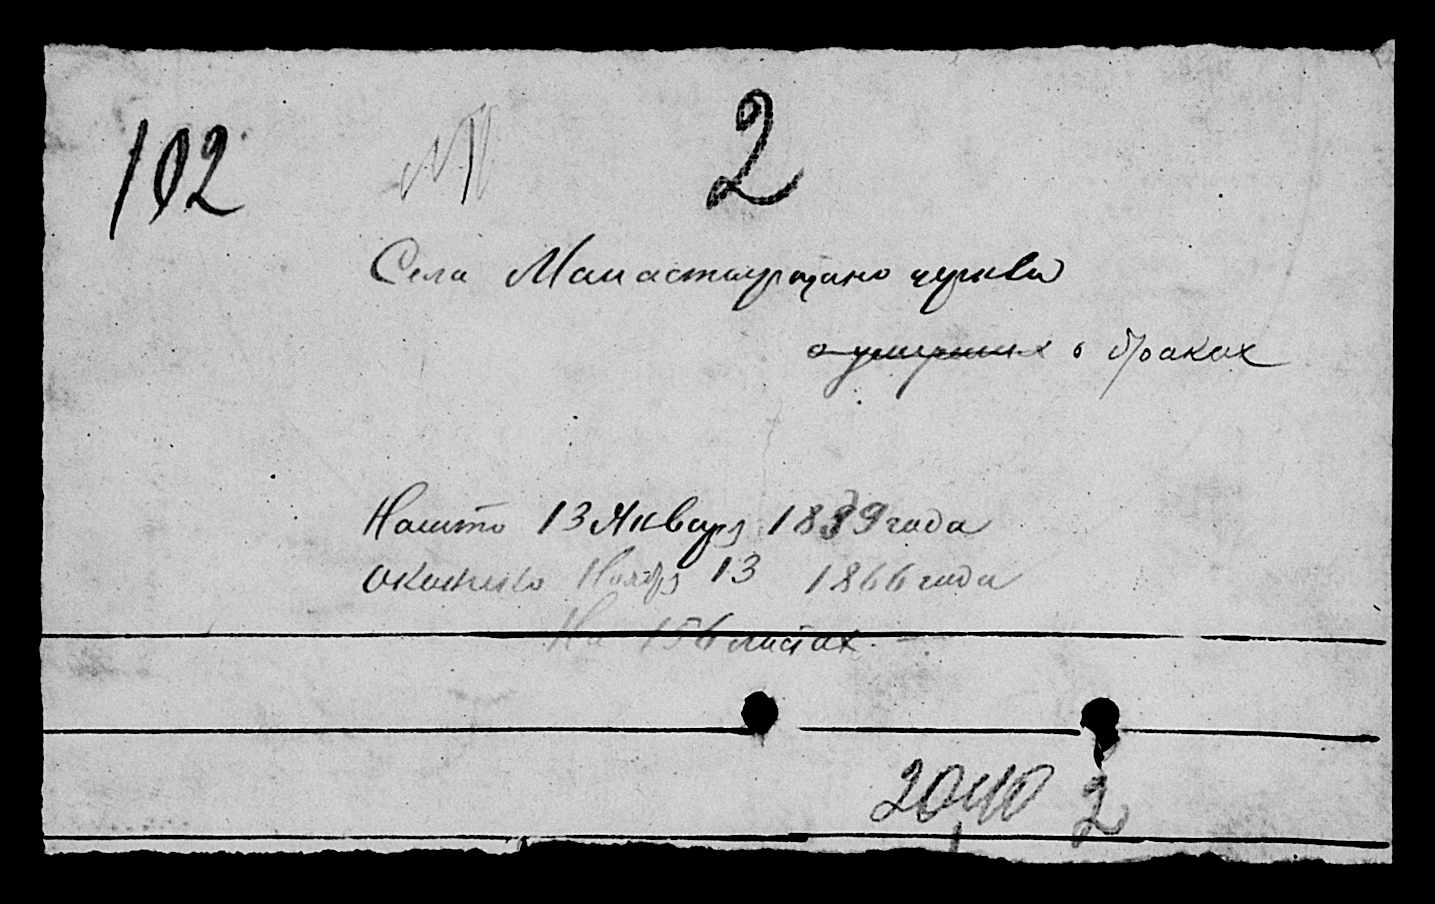 102
2
Села Манастырщино церкви
о умерших о браках
Начто 13 Январз 1839 года
Окончено Ноябрз 13 1866 года
На 156 листах
2040 2